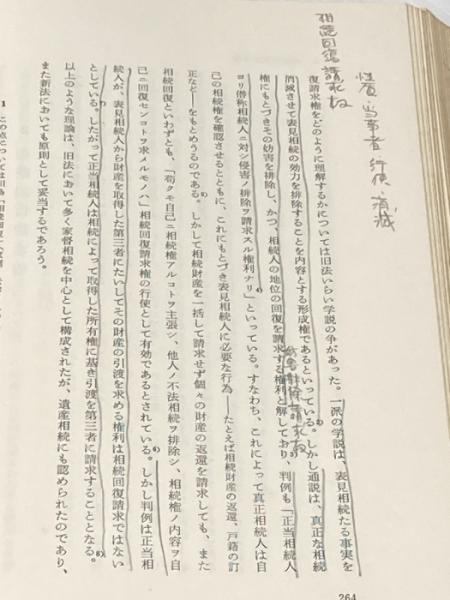 相続回復請求权
性質、当事者、行使、消滅
復請求権をどのように理解するかについては旧法いらい学説の争があった。一派の学説は、表見相続たる事実を
消滅させて表見相続の効力を排除することを内容とする形成権であるといっている。しかし通説は、真正な相続
権にもとづきその妨害を排除し、かつ、相続人の地位の回復を請求する権利と解しており、判例も「正当相続人
ヨリ僭称相続人ニ対シ侵害ノ排除ヲ請求スル権利ナリ」といっている。すなわち、これによって真正相続人は自
己の相続権を確認させるとともに、これにもとづき表見相続人に必要な行為――たとえば相続財産の返還、戸籍の訂
正など――をもとめうるのである。しかして相続財産を一括して請求せず個々の財産の返還を請求しても、また
相続回復といわずとも、「苟クモ自己ニ相続権アルコトヲ主張シ、他人ノ不法相続ヲ排除シ、相続権ノ内容ヲ自
己ニ回復センコトヲ求メルモノハ」相続回復請求権の行使として有効であるとされている。しかし判例は正当相
続人が、表見相続人から財産を取得した第三者にたいしてその財産の引渡を求める権利は相続回復請求ではない
としている。したがって正当相続人は相続によって取得した所有権に基き引渡を第三者に請求することとなる。
以上のような理論は、旧法において多く家督相続を中心として構成されたが、遺産相続にも認められたのであり、
また新法においても原則として妥当するであろう。
1 この点については川島「相続回復
264